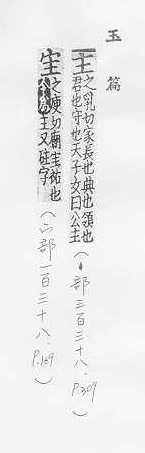 玉篇
主之乳切家長也典也領也
君也守也天子女曰公主
(丶部三百三十八.P.309)
宔之庾切廟宔祏也
今爲主又砫字
(宀部一百三十八.P.189)